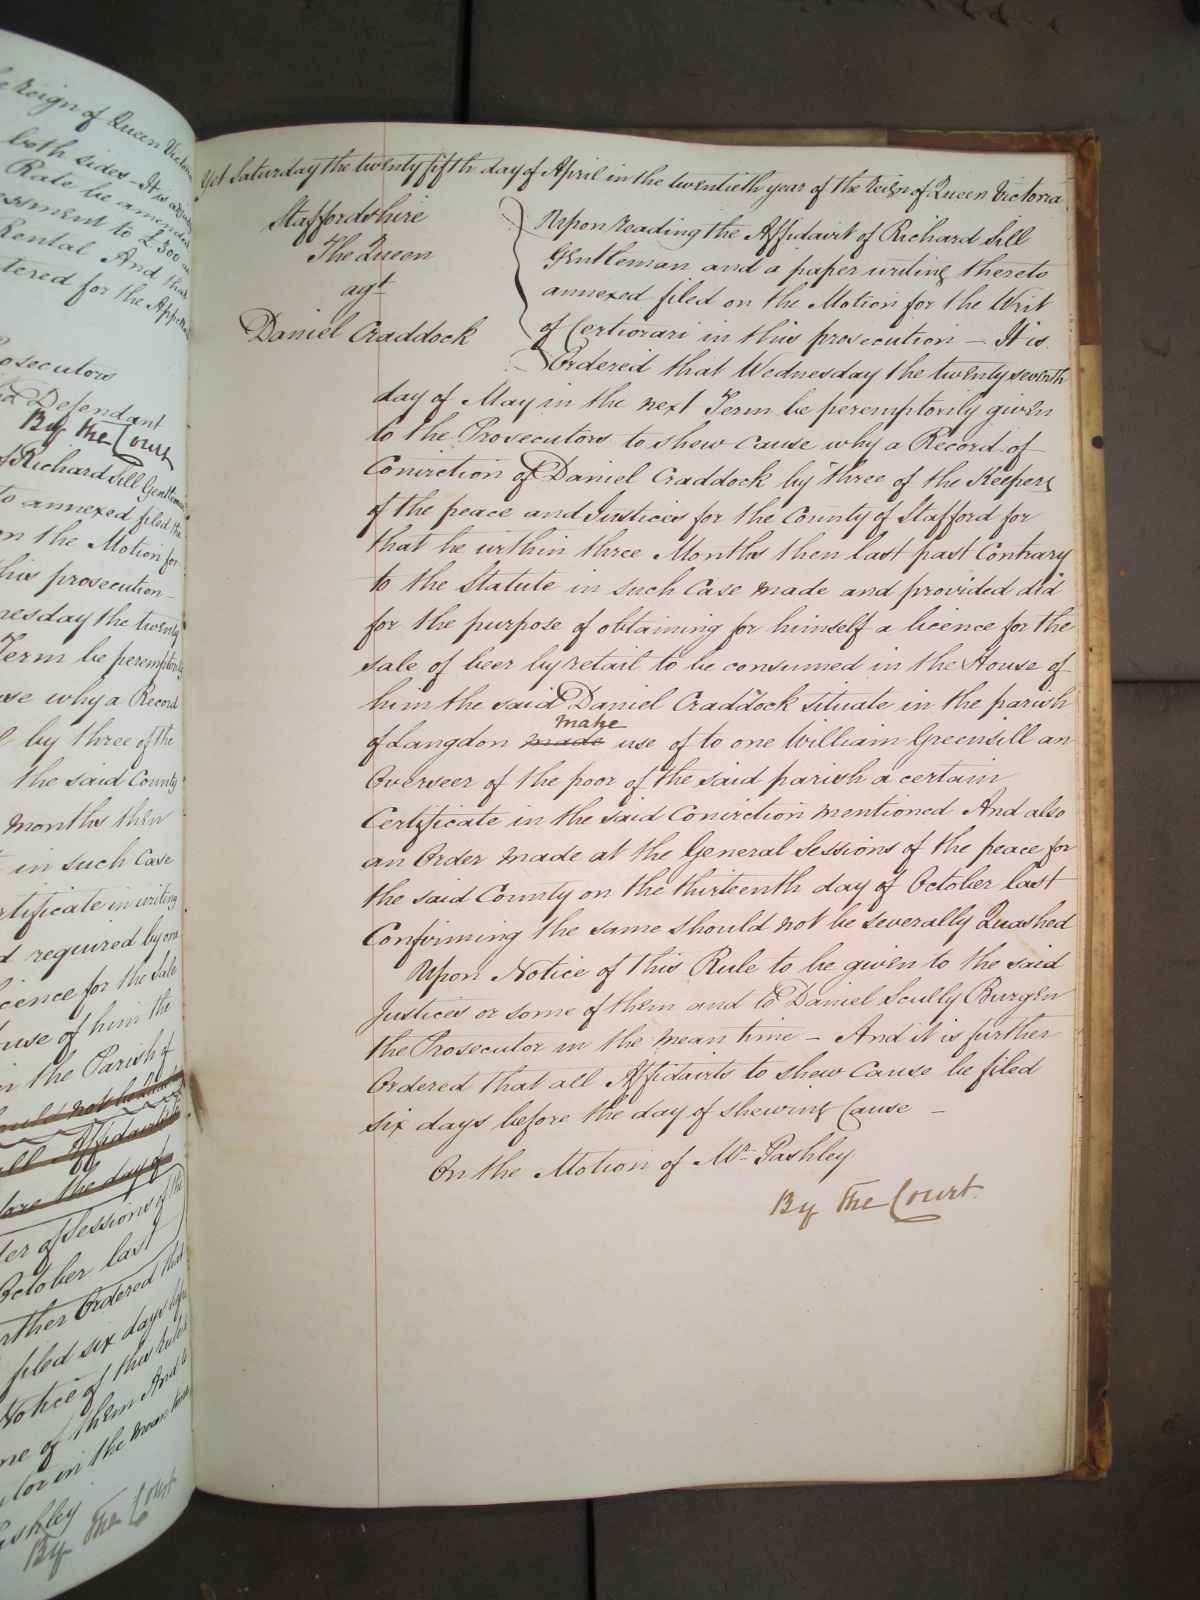 he Reign of Queen Victoria
both sides – It is
Rate be amended
essment to £300
Rental And that
tered for the
rosecutors
Defendant
By the Court
of Richard Sill Gentleman
to annexed filed
on the Motion for
his prosecution –
nesday the twenty
Term be peremptorily
use why a Record
by three of the
the said County
months then
in such Case
rtificate in writing
d required by one
icence for the Sale
use of him the
in the Parish of
ould not be
all Affidavits
fore the day of
der of Sessions of the
October last
rther Ordered that
filed six days
Notice of this Rule
me of them And to
utor in the mean time
ashley
By the Court
Yet Saturday the twenty fifth day of April in the twentieth year of the Reign of Queen Victoria
Staffordshire
The Queen
agt
Daniel Craddock
Upon reading the Affidavit of Richard Sill
Gentleman and a paper writing thereto
annexed filed on the Motion for the Writ
of Certiorari in this prosecution – It is
Ordered that Wednesday the twenty seventh
day of May in the next Term be peremptorily given
to the Prosecutors to shew cause why a Record of
Conviction of Daniel Craddock by three of the Keepers
of the peace and Justices for the County of Stafford for
that he within three Months then last past Contrary
to the Statute in such Case made and provided did
for the purpose of obtaining for himself a licence for the
sale of beer by retail to be consumed in the House of
him the said Daniel Craddock situate in the parish
make
of Langdon made use of to one William Greensill an
Overseer of the poor of the said parish a certain
Certificate in the said Conviction mentioned And also
an Order made at the General Sessions of the peace for
the said County on the thirteenth day of October last
Confirming the same should not be severally Quashed
Upon Notice of this Rule to be given to the said
Justices or some of them and to Daniel Scully Burgen
the Prosecutor in the mean time – And it is further
Ordered that all Affidavits to shew Cause be filed
six days before the day of shewing Cause –
On the Motion of Mr Pashley
By the Court